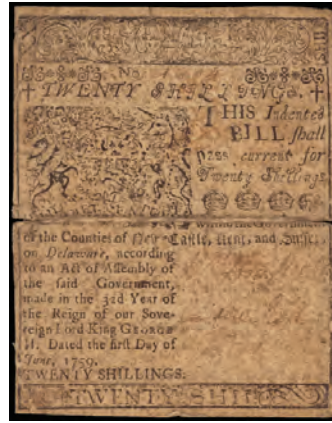 No.
TWENTY SHILLINGS.
THIS Indented
BILL shall
pass current for
Twenty Shillings
within the Government
of the Counties of New-Castle, Kent, and Sussex
on Delaware, according
to an Act of Assembly of
the said Government,
made in the 32d Year of
the Reign of our Sove-
reign Lord King GEORGE
II. Dated the first Day of
June, 1759.
TWENTY SHILLINGS.
TWENTY SHILL